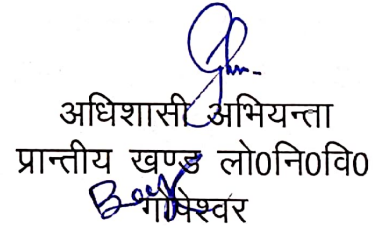 अधिशासी अभियन्ता
प्रान्तीय खण्ड लो0नि0वि0
गोपेश्वर